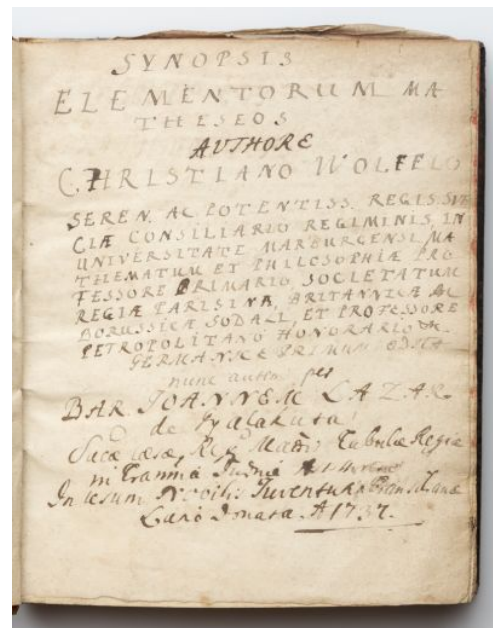 SYNOPSIS
ELEMENTORUM MA
THESEOS
AUTHORE
CHRISTIANO WOLFFIO
SEREN. AC POTENTISS. REGIS SVE
CIÆ CONSILIARIO REGIMINIS, IN
UNIVERSITATE MARBURGENSI MA
THEMATUM ET PHILOSOPHIÆ PRO
FESSORE PRIMARIO, SOCIETATUM
REGIÆ PARISINÆ, BRITANNICÆ AC
BORUSSICÆ SODALI, ET PROFESSORE
PETROPOLITANO HONORARIO
GERMANICE PRIMUM EDITA
nunc autem per
BAR. JOANNEM LAZAR
de Gyalakuta
Sacæ Regæ Tabulæ Regiæ
in Trannia
In usum Nobilis Juventutis Transilvanæ
Latio Donata. A 1737.